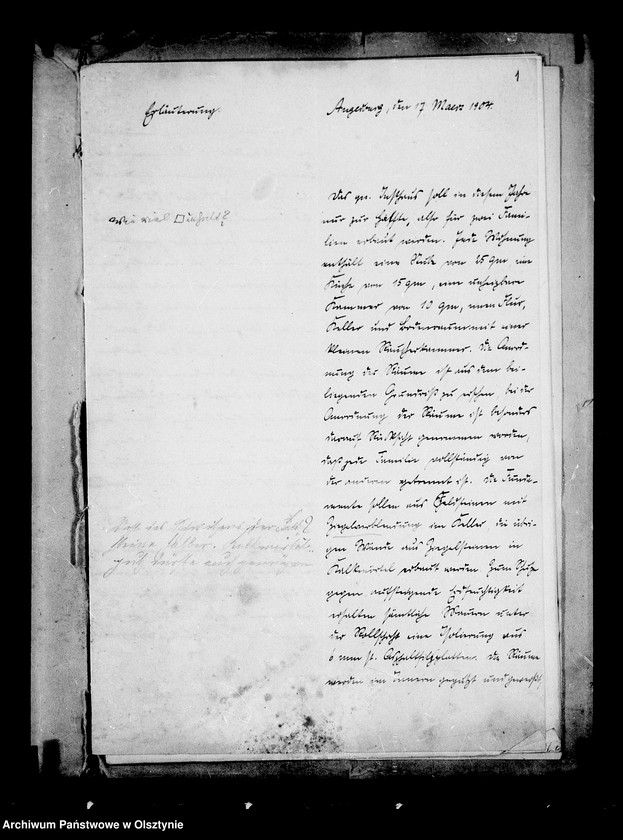 1
Erläuterung.
Angerburg, den 17 Maerz 1904.
wie viel □inhalt?
Das qu. Insthaus soll in diesem Jahre
nur zur Hälfte, also für zwei Fami-
lien erbaut werden. Jede Wohnung
enthält eine Stube von 25 qm eine
Küche von 15 qm, eine unheizbare
Kammer von 10 qm, einen Flur,
Keller und Bodenraum mit einer
kleinen Räucherkammer. Die Anord-
nung der Räume ist aus dem bei-
liegenden Grundriß zu ersehen, bei der
Anordnung der Räume ist besonders
darauf Rücksicht genommen worden,
daß jede Familie vollständig von
der anderen getrennt ist. Die Funda-
mente sollen aus Feldsteinen mit
Ziegelverblendung im Keller die übri-
gen Wände aus Ziegelsteinen in
Kalkmörtel erbaut werden. Zum Schutz
gegen aufsteigende Erdfeuchtigkeit
erhalten sämtliche Mauern unter
der Rollschicht eine Isolierung aus
6 mm st. Asphaltfilzplatten. Die Räume
werden im Innern geputzt und geweißt
Archiwum Państwowe w Olsztynie